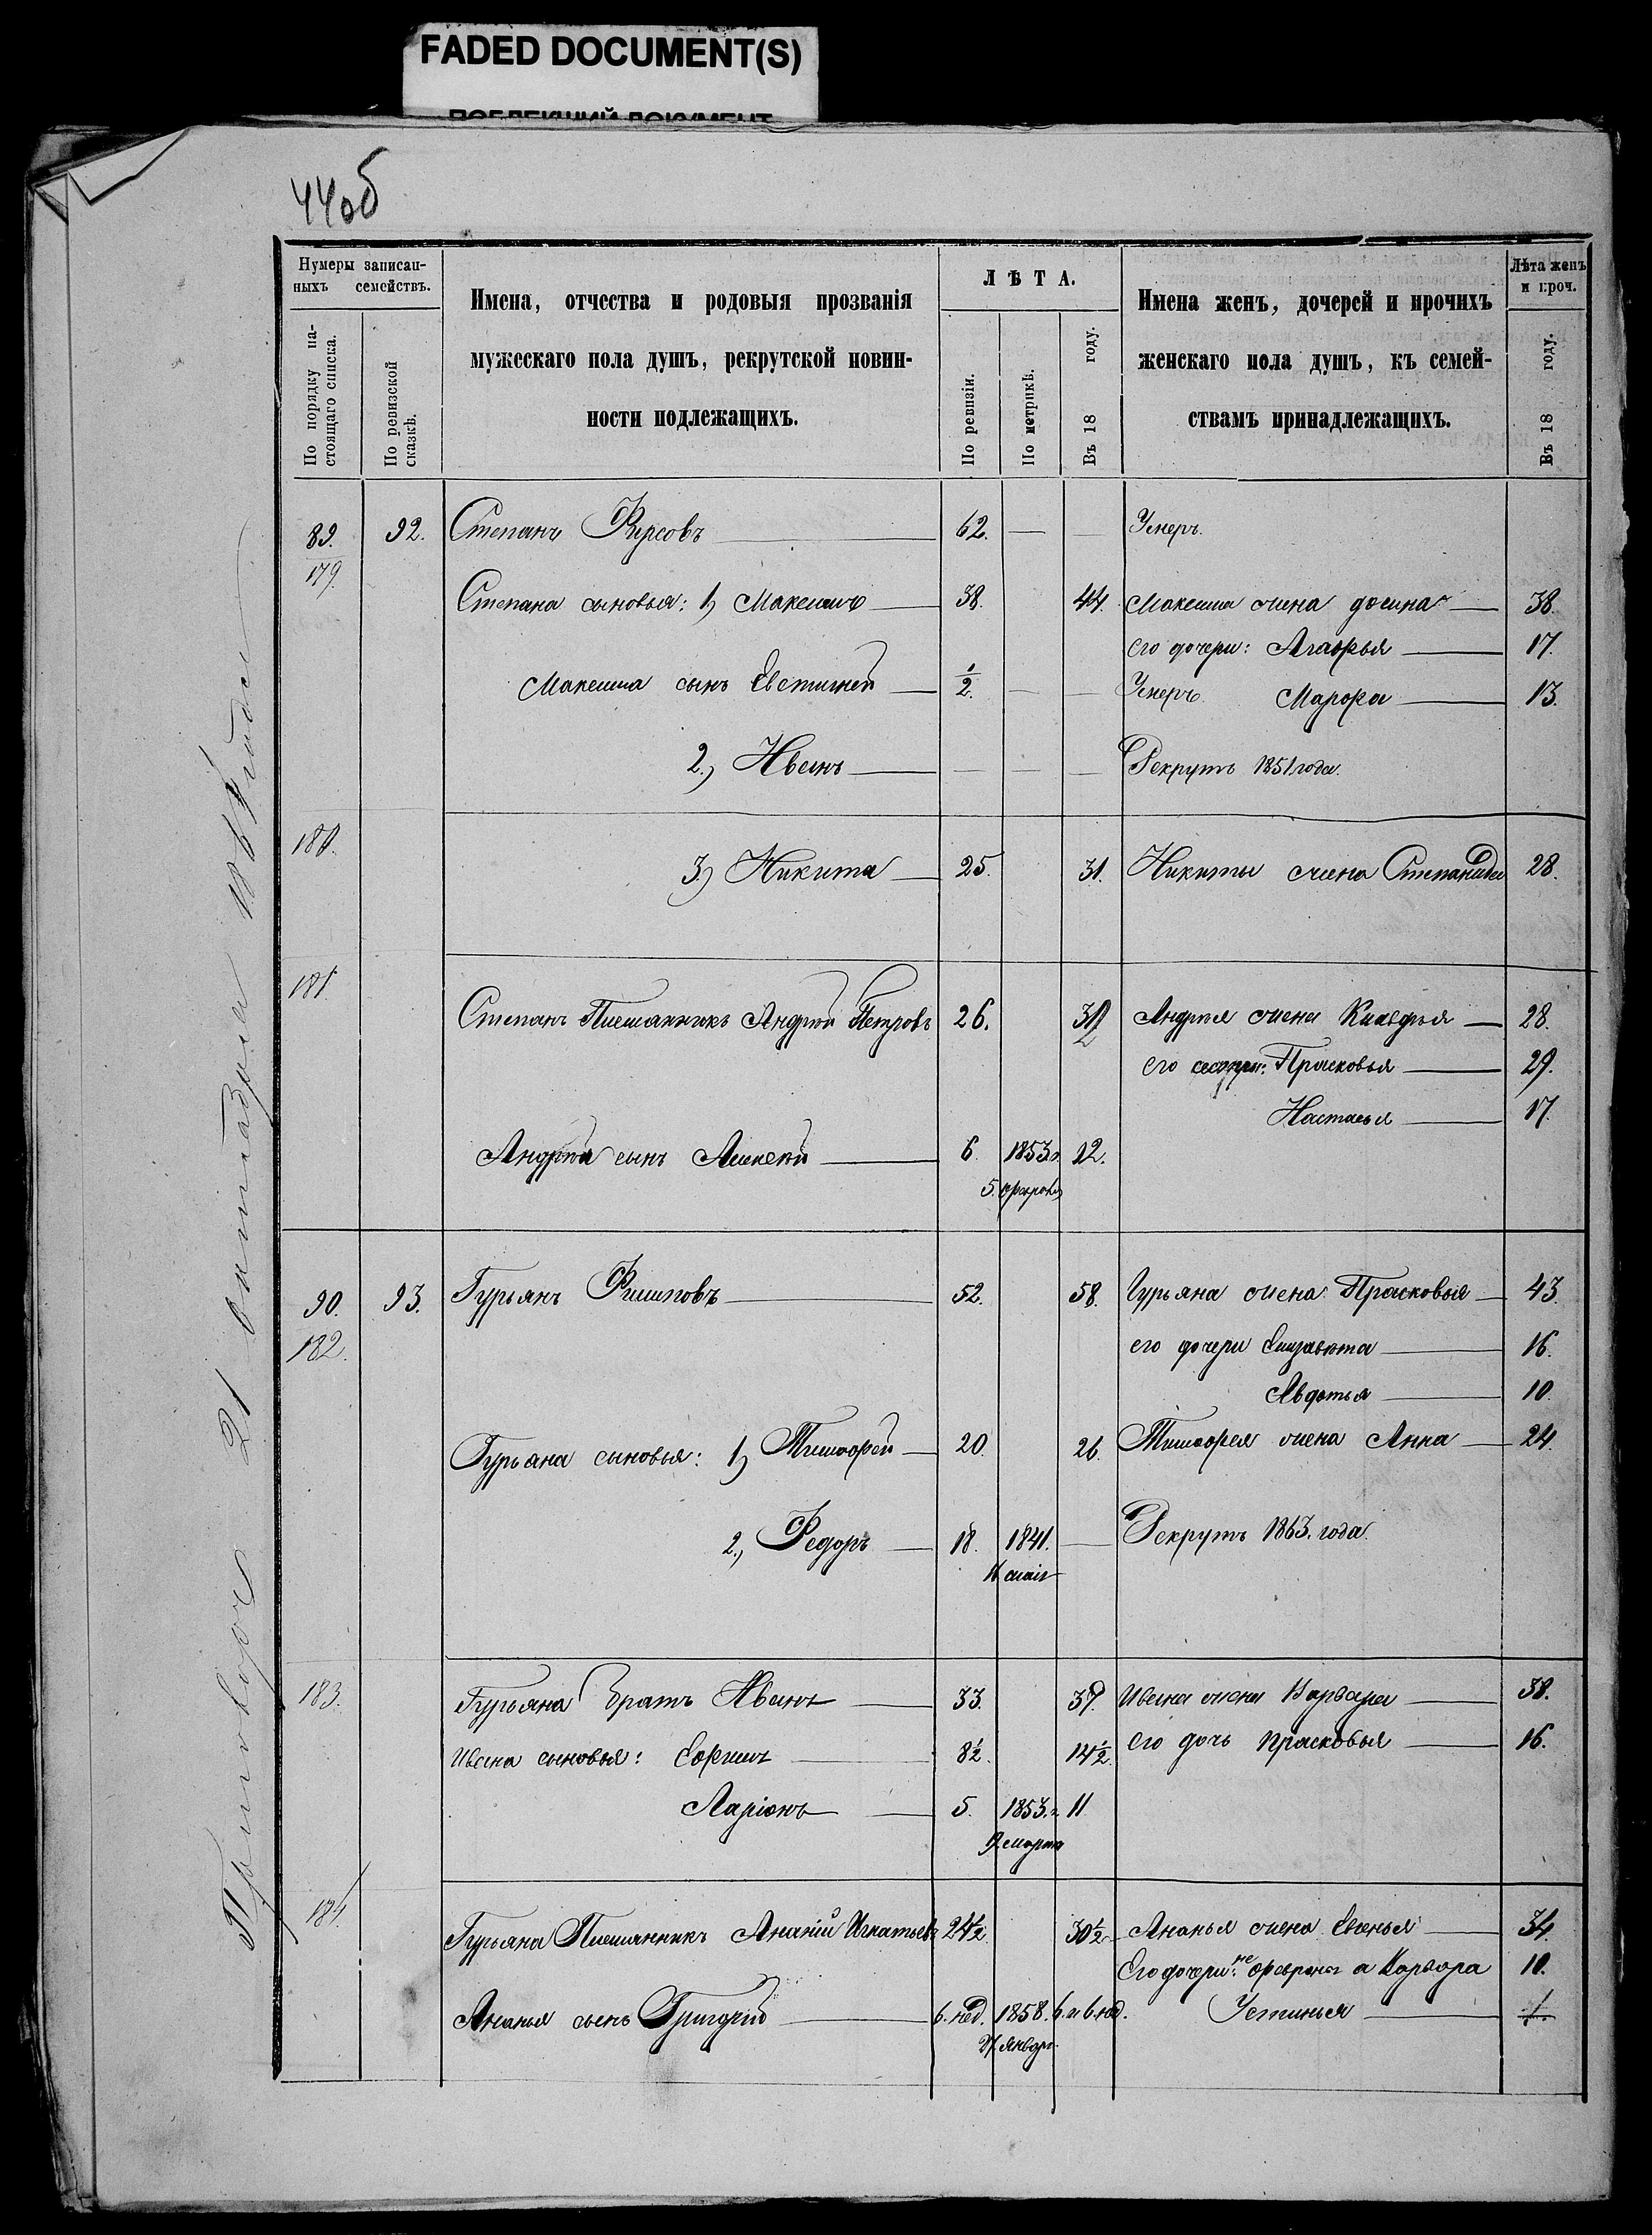 FADED DOCUMENT(S)
ПОБЛЕКШИЙ ДОКУМЕНТ
44об
Нумеры записан-
ныхъ семействъ.
По порядку на-
стоящаго списка.
По ревизской
сказкѣ.
Имена, отчества и родовыя прозванія
мужескаго пола душъ, рекрутской повин-
ности подлежащихъ.
ЛѢТА.
По ревизіи.
По метрикѣ.
Въ 18 году.
Имена женъ, дочерей и прочихъ
женскаго пола душъ, къ семей-
ствамъ принадлежащихъ.
Лѣта женъ
и проч.
Въ 18 году.
89. 92. Степанъ Фирсовъ 62. Умеръ.
179.
Степана сыновья: 1) Максимъ 38. 44. Максима жена 38.
его дочери: Агафья 17.
Максима сынъ Евстигней ½. Умеръ. Марфа 13.
2.) Иванъ Рекрутъ 1851 года.
180.
3.) Никита 25. 31. Никиты жена Степанида 28.
181.
Степана Племянникъ Андрей Петровъ 26. 32 Андрея жена Клавдья 28.
его сестры: Прасковья 29.
Настасья 17.
Андрея сынъ Алексѣй 6. 1853 г. 12.
5. февраля
90. 93. Гурьянъ Филиповъ 52. 58. Гурьяна жена Прасковья 43.
182. его дочери Елизавета 16.
Авдотья 10.
Гурьяна сыновья: 1) Тимофей 20. 26. Тимофея жена Анна 24.
2.) Федоръ 18. 1841. Рекрутъ 1863. года.
маія
183. Гурьяна братъ Иванъ 33. 39. Ивана жена Варвара 38.
Ивана сыновья: Ефимъ 8½. 14½. его дочь Прасковья 16.
Ларіонъ 5. 1853. г. 11
9. марта
184.
Гурьяна Племянникъ Ананій Игнатьевъ 24½. 30½. Ананья жена Евгенья 34.
Его дочери: Варвара 10.
Ананья сынъ Григорій 6. нед. 1858. 6. и 6. нед. Устинья 1.
январ.
Приговоръ 21 октября 1864 года